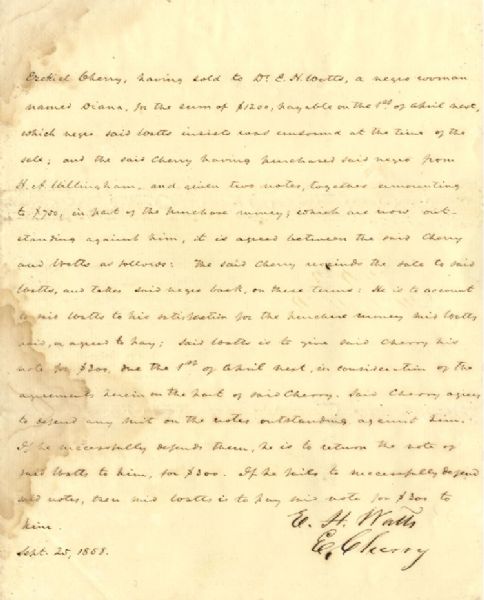 Ezekiel Cherry, having sold to Dr. E. H. Watts, a negro woman
named Diana, for the sum of $1200, payable on the 1st of April next,
which negro said Watts insists was unsound at the time of the
sale; and the said Cherry having purchased said negro from
H. A. Willingham, and given two notes, together amounting
to $700, in part of the purchase money; which are now out-
standing against him, it is agreed between the said Cherry
and Watts as follows: The said Cherry rescinds the sale to said
Watts, and takes said negro back, on these terms: He is to account
to said Watts to his satisfaction for the purchase money said Watts
paid, or agreed to pay; said Watts is to give said Cherry his
note for $300, due the 1st of April next, in consideration of the
agreements herein on the part of said Cherry. Said Cherry agrees
to defend any suit on the notes outstanding against him.
If he successfully defends them, he is to return the note of
said Watts to him, for $300. If he fails to successfully defend
said notes, then said Watts is to pay said note for $300 to
him.
E. H. Watts
Sept. 25, 1858.
E. Cherry